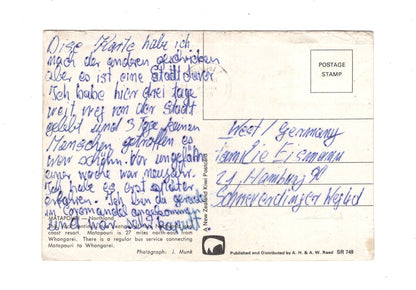 Diese Karte habe ich
nach der anderen geschrieben
aber es ist eine Stadt
Ich habe hier drei Tage
weit weg von der Stadt
gelebt und 3 Tage keinen
Menschen getroffen es
war schön. Vor ungefähr
einer Woche war neujahr.
Ich habe es erst später
erfahren. Ich bin da gerade
in Coromandel angekommen
und war sehr kaputt
MATAPOURI — Northland
coast resort. Matapouri is 27 miles north-east from
Whangarei. There is a regular bus service connecting
Matapouri to Whangarei.
Photograph: J. Munk
A New Zealand Kiwi Postcard
POSTAGE
STAMP
West / Germany
Familie Eismann
21 Hamburg 90
Published and Distributed by A. H. & A. W. Reed SR 748